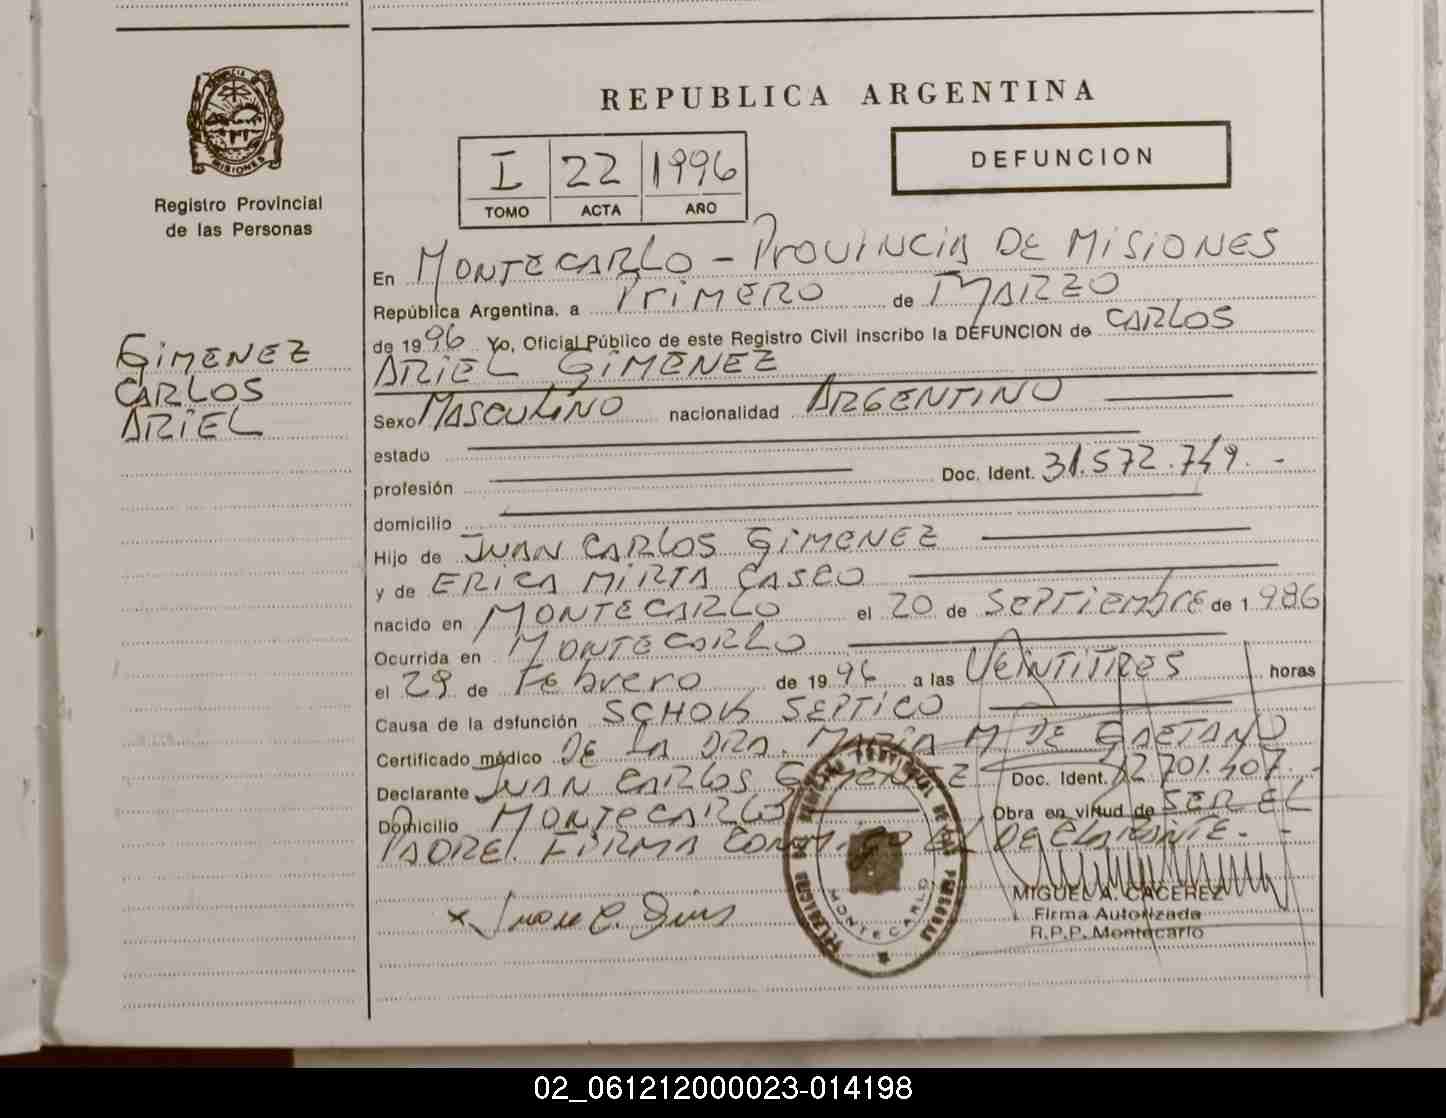 REPUBLICA ARGENTINA
DEFUNCION
I 22 1996
TOMO ACTA AÑO
MISIONES
Registro Provincial
de las Personas
GIMENEZ
CARLOS
ARIEL
En MONTECARLO - PROVINCIA DE MISIONES
República Argentina, a PRIMERO de MARZO
de 1996 Yo, Oficial Público de este Registro Civil inscribo la DEFUNCION de CARLOS
ARIEL GIMENEZ
Sexo MASCULINO nacionalidad ARGENTINO
estado
profesión Doc. Ident. 31.572.749.-
domicilio
Hijo de JUAN CARLOS GIMENEZ
y de ERICA MIRTA CASCO
nacido en MONTECARLO el 20 de SEPTIEMBRE de 1.986
Ocurrida en MONTECARLO
el 29 de Febrero de 1996 a las VEINTITRES horas
Causa de la defunción SCHOK SEPTICO
Certificado médico DE LA DRA. MARIA M DE GAETANO
Declarante JUAN CARLOS GIMENEZ Doc. Ident. 12.701.407.-
Domicilio MONTECARLO Obra en virtud de SER EL
PADRE. FIRMA CONMIGO EL DECLARANTE.-
DELEGACION DEL REGISTRO PROVINCIAL DE LAS PERSONAS
MONTECARLO
MIGUEL A. CACEREZ
Firma Autorizada
R.P.P. Montecarlo
02_061212000023-014198